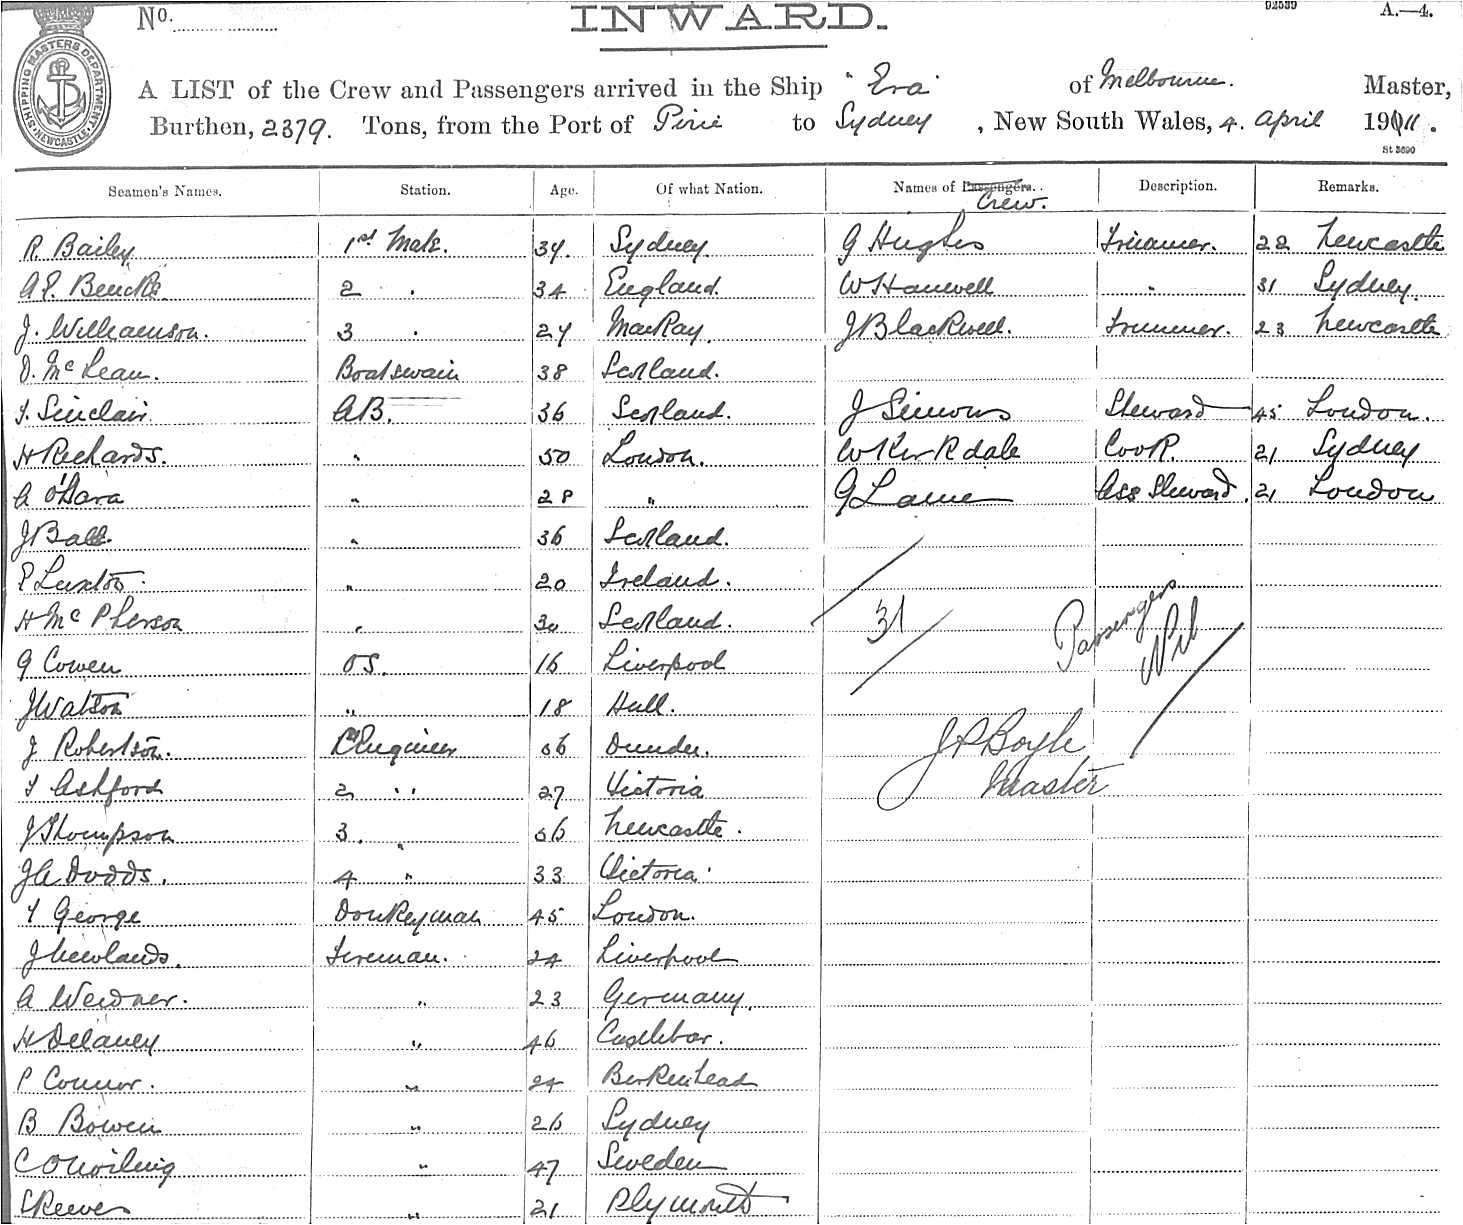 No. INWARD. 92539 A.—4.
SHIPPING MASTERS DEPARTMENT NEWCASTLE
A LIST of the Crew and Passengers arrived in the Ship "Era" of Melbourne. Master,
Burthen, 2379. Tons, from the Port of Pirie to Sydney, New South Wales, 4. April 1911.
St 3690
Seamen's Names. Station. Age. Of what Nation. Names of Passengers. Description. Remarks.
Crew.
R. Bailey 1st Mate. 34. Sydney. G Hughes Trimmer. 22 Newcastle
2 . 34 England. W Hanwell " 31 Sydney.
J. Williamson. 3 . 27 MacKay. J Blackwell. Trimmer. 23 Newcastle
D. McLean. Boatswain 38 Scotland.
T. Sinclair. AB. 36 Scotland. J Simons Steward 45 London.
H Richards. " 50 London. W Kirkdale Cook. 21 Sydney
A O'Hara " 28 " G Lawe Ass Steward. 21 London
J Ball. " 36 Scotland.
P Luxton. " 20 Ireland.
H McPherson " 30 Scotland. 31 Passengers
G Cowen OS. 16 Liverpool Nil
J Watson " 18 Hull.
J Robertson. Engineer 36 Dundee. J P Boyle
T Ashford 2 " 27 Victoria Master
J Thompson 3. " 36 Newcastle.
J A Dodds. 4 " 33 Victoria.
T George Donkeyman 45 London.
J Newlands. Fireman. 24 Liverpool
A Weidner. " 23 Germany.
H Delaney " 46 Castlebar.
P Connor. " 24 Birkenhead
B Bowen " 26 Sydney
" 47 Sweden
S Reeves " 21 Plymouth